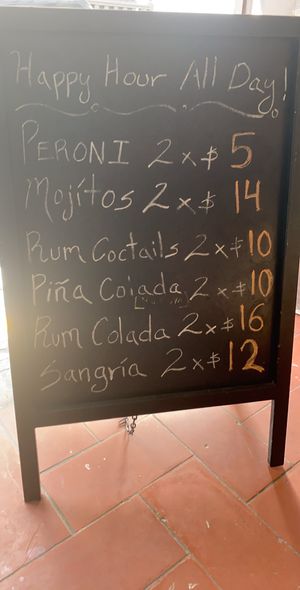 Happy Hour All Day!
PERONI 2x$5
Mojítos 2x$14
Rum Coctails 2x$10
Piña Colada 2x$10
Rum Colada 2x$16
Sangría 2x$12